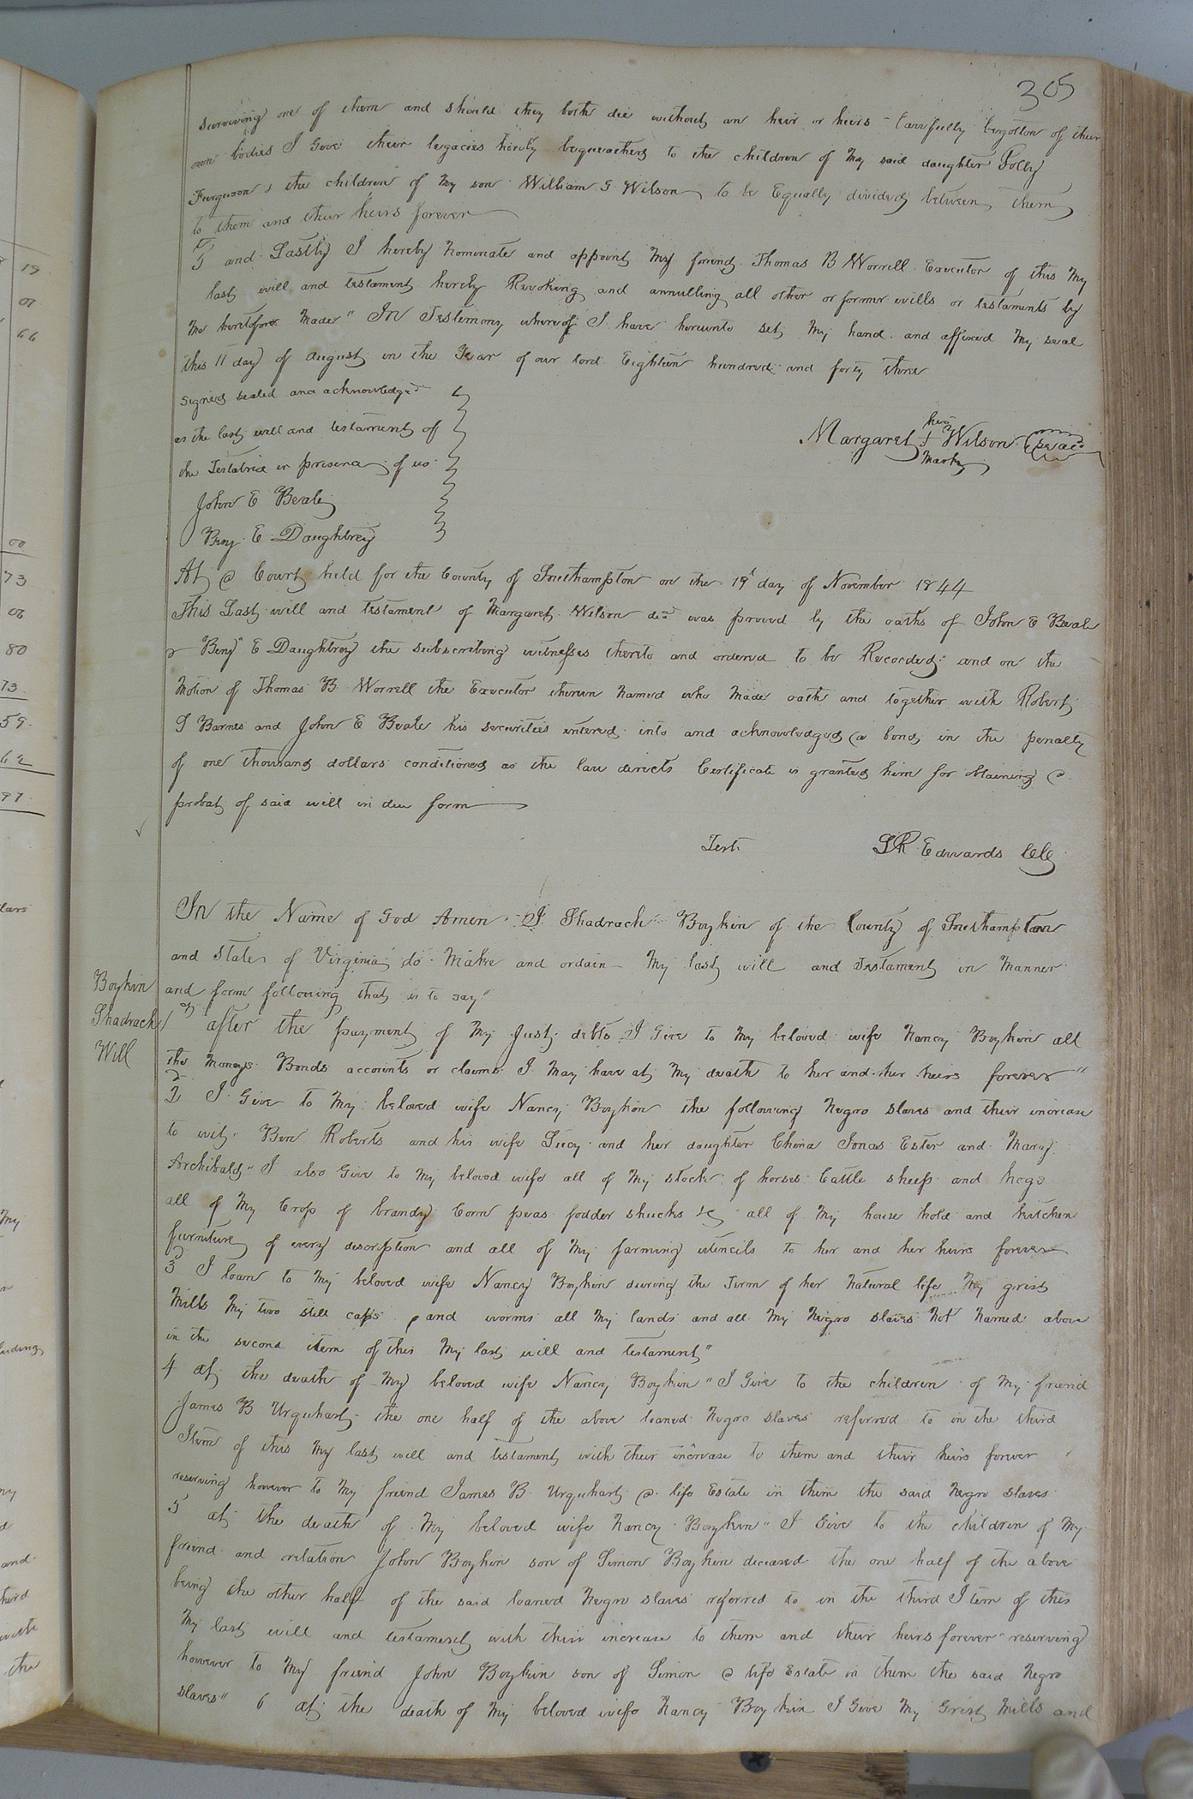 305
Surviving one of them and should they both die without an heir or heirs Lawfully begotton of their
own bodies I Give their legacies hereby bequeathed to the children of My said daughter Polly
Furguson & the children of My son William G Wilson to be Equally divided between them
to them and their heirs forever
5 and Lastly I hereby Nominate and appoint My friend Thomas B Worrell Executor of this My
last will and testament hereby Revoking and annulling all other or former wills or testaments by
Me heretofore Made" In Testemony whereof I have hereunto set My hand and affixed My seal
this 11 day of august in the Year of our lord Eighteen hundred and forty three
Signed sealed and acknowledged
as the last will and testament of
the Testatrix in presence of us
John E Beale
Benj. E Daughtrey
her
Margaret + Wilson Seal
Mark
At a Court held for the County of Southampton on the 19 day of November 1844
This Last will and testament of Margaret Wilson decd was proved by the oaths of John E Beale
& Benj E Daughtrey the subscribing witnesses thereto and ordered to be Recorded: and on the
Motion of Thomas B Worrell the Executor therein Named who Made oath and together with Robert
S Barnes and John E Beale his securities entered into and acknowledged a bond in the penalty
of one thousand dollars conditioned as the law directs Certificate is granted him for obtaining a
probat of said will in due form
Test. LR Edwards CC
Boykin
Shadrach
Will
In the Name of God Amen I Shadrach Boykin of the County of Southampton
and state of Virginia do Make and ordain My last will and testament in Manner
and form following that is to say"
1st after the payment of My Just debts I Give to My beloved wife Nancy Boykin all
the Moneys Bonds accounts or claims I May have at My death to her and her heirs forever"
2 I Give to My beloved wife Nancy Boykin the following Negro slaves and their increase
to wit. Ben Roberts and his wife Lucy and her daughter China Jonas Ester and Mary
Archibald" I also Give to My beloved wife all of My stock of horses Cattle sheep and hogs
all of My Crop of brandy Corn peas fodder shucks &c all of My house hold and kitchen
furniture of every description and all of My farming utencils to her and her heirs forever
3 I loan to My beloved wife Nancy Boykin during the Term of her Natural life My grist
Mills My two still caps and worms all My lands and all My Negro slaves Not Named above
in the second item of this My last will and testament"
4 at the death of My beloved wife Nancy Boykin" I Give to the children of My friend
James B Urquhart the one half of the above loaned Negro slaves referred to in the third
Item of this My last will and testament with their increase to them and their heirs forever
reserving however to My friend James B Urquhart a life Estate in them the said Negro slaves
5 at the death of My beloved wife Nancy Boykin" I Give to the children of My
friend and relation John Boykin son of Simon Boykin deceased the one half of the above
being the other half of the said loaned Negro slaves referred to in the third Item of this
My last will and testament with their increase to them and their heirs forever" reserving
however to My friend John Boykin son of Simon a life Estate in them the said Negro
slaves" 6 at the death of My beloved wife Nancy Boykin I Give My Grist Mills and